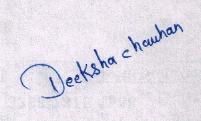 Deeksha chauhan